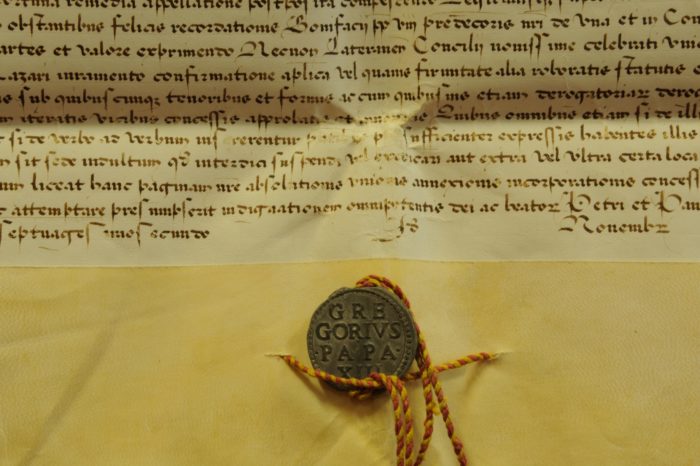 remedia appellatione postposita
obstantibus felicis recordationis Bonifacii pp vııı predecoris nri de Una et ın Con
artes et valore exprimendo Necnon Lateranen Concilii novissime celebrati
Lazari iuramento confirmatione aplica vel quavis firmitate alia roboratis statutis e
sub quibuscunq tenoribus et formis ac cum quibusvis etiam derogatoriar
iteratis vicibus concessis approbatis et Quibus omnibus etiam si de illi
si de verbo ad verbum insererentur sufficienter expressis habentes illis
sit sede indultum qd interdici suspendi vel excōicari aut extra vel ultra certa loca
liceat hanc paginam nre absolutionis unionis annexionis incorporationis concess
attemptare presumpserit indignationem omnipotentis dei ac beator Petri et Pau
septuagesimosecundo Id Novembr
GRE
GORIVS
PAPA
XIII